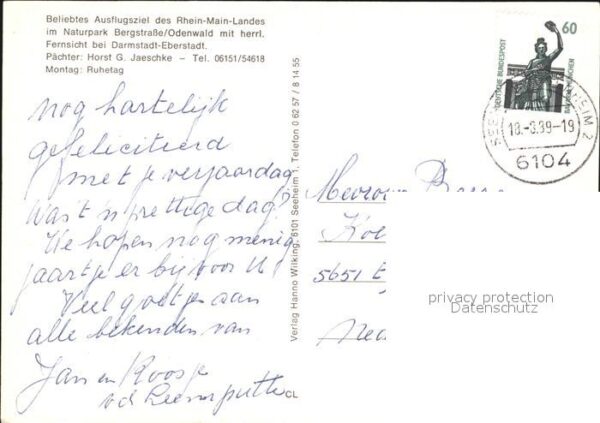 Beliebtes Ausflugsziel des Rhein-Main-Landes
im Naturpark Bergstraße/Odenwald mit herrl.
Fernsicht bei Darmstadt-Eberstadt.
Pächter: Horst G. Jaeschke – Tel. 06151/54618
Montag: Ruhetag
nog hartelijk
gefeliciteerd
met je verjaardag
Was't 'n prettige dag?
We hopen nog menig
jaartje er bij voor U!
Veel groetjes aan
alle bekenden van
Jan en Roosje
v.d.
Verlag Hanno Wilking, 6101 Seeheim 1, Telefon 0 62 57 / 8 14 55
60
DEUTSCHE BUNDESPOST
BAVARIA MÜNCHEN
HEIM 2
18.-8.89-19
6104
Mevrouw
5651
privacy protection
Datenschutz